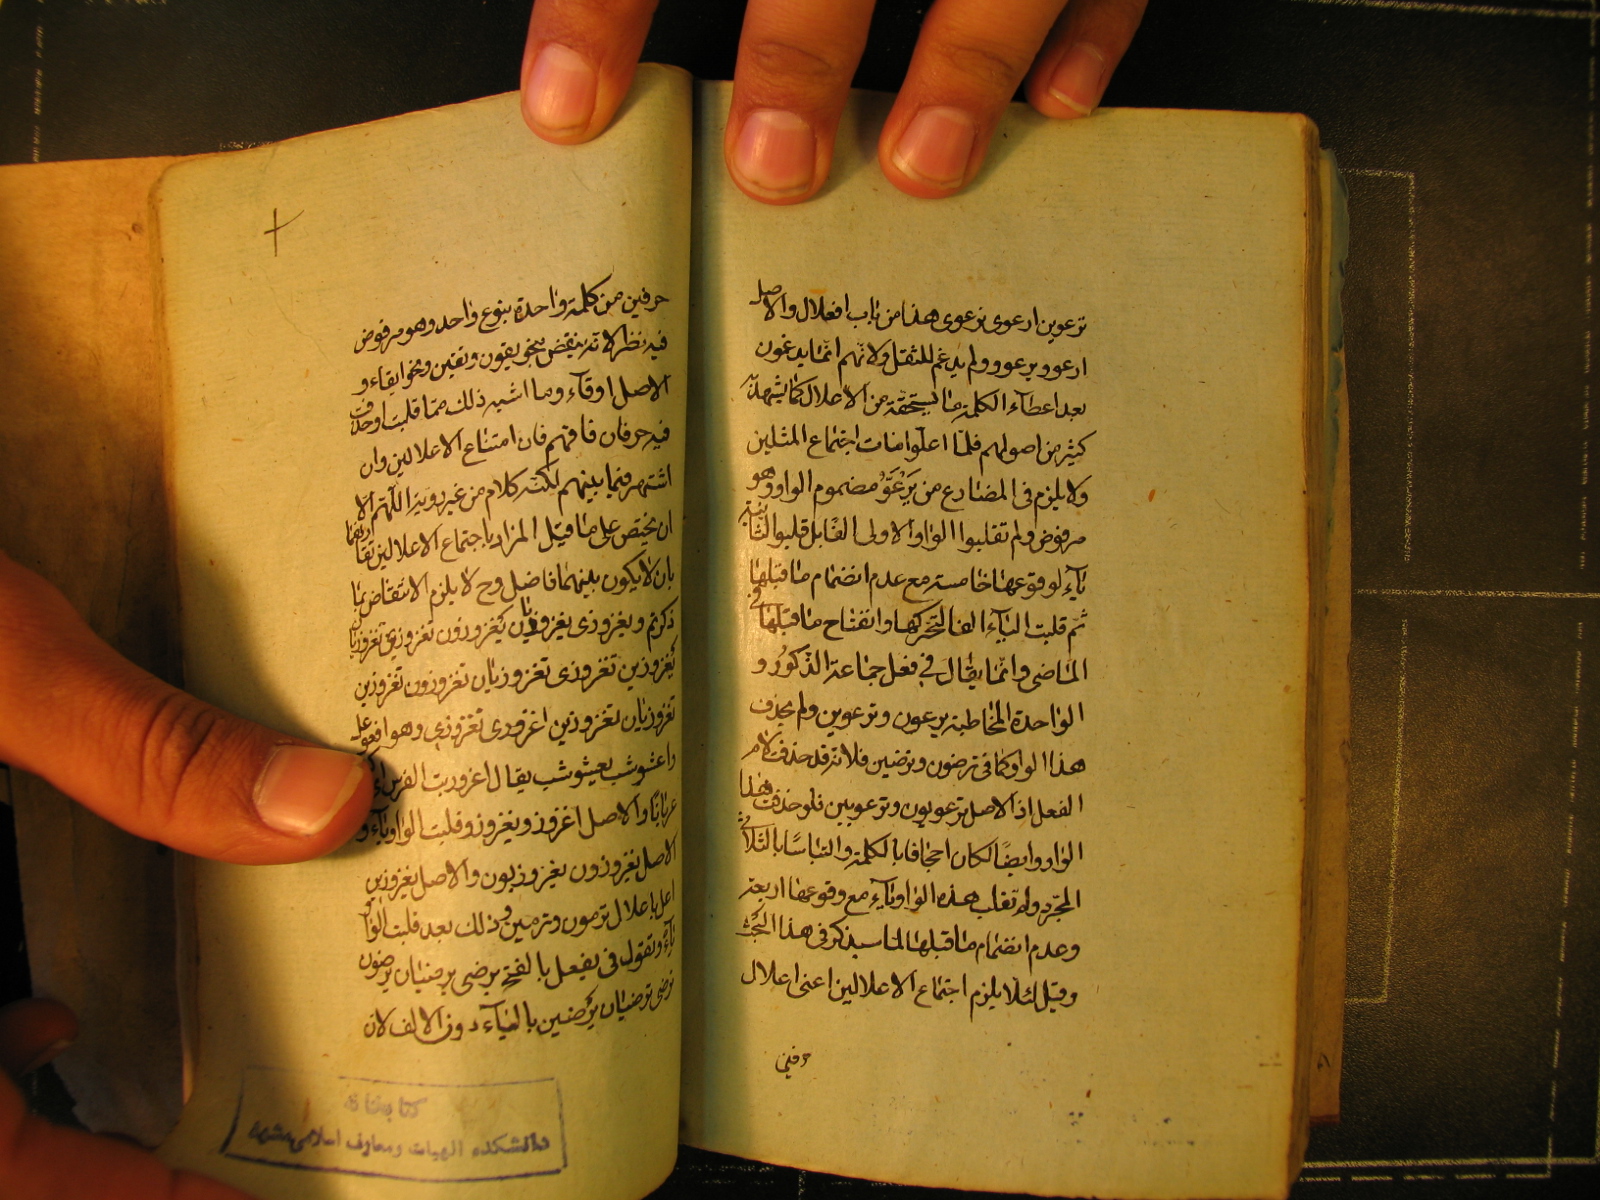 ترعوين ارعوى يرعوى هذا من باب افعلال والاصل
ارعوو يرعوو ولم يدغم للثقل ولانهم انما يدغون
بعد اعطاء الكلمة ما تستحقه من الاعلال كما يشهد به
كثير من اصولهم فلما اعلوا فات اجتماع المثلين
ولا يلزم فى المضارع من يَرْعَوُّ مضموم الواو وهو
مرفوض ولم تقلبوا الواو الاولى الفا بل قلبوا الثانية
ياء لوقوعها خامسة مع عدم انضمام ما قبلها
ثم قلبت الياء الفا لتحركها وانفتاح ما قبلها فى
الماضى وانما يقال فى فعل جماعة الذكور و
الواحدة المخاطبة يرعون وترعوين ولم يحذف
هذا الواو كما فى ترضون وترضين فلانه قد حذفت لام
الفعل اذ الاصل ترعويون وترعويين فلو حذفت هذا
الواو وايضا لكان اجحافا بالكلمة والتباسا بالثلاثى
المجرد ولم تقلب هذه الواو ياء مع وقوعها اربعة
وعدم انضمام ما قبلها لما سيذكر فى هذا البحث
وقيل لئلا يلزم اجتماع الاعلالين اعنى اعلال
حرفين
حرفين من كلمة واحدة بنوع واحد وهو مرفوض
فيه نظر لانه ينتقض بنحو يقون وتقين ونحو ايقاء و
الاصل اوقاء وما اشبه ذلك مما قلبت او حذفت
فيه حرفان فافهم فان امتناع الاعلالين وان
اشتهر فيما بينهم لكنه كلام من غير روية اللهم الا
ان يختص على ما قيل المراد باجتماع الاعلالين تقاربهما
بان لا يكون بينهما فاصل وح لا يلزم الانتقاض بما
ذكرتم ويغزوزى يغزوزيان يغزوزون تغزوزى تغزوزيان
يغزوزين تغزوزى تغزوزيان تغزوزون تغزوزين
تغزوزيان تغزوزين اغزوزى تغزوزى وهو افعوعل
واعشوشب يعشوشب يقال اعروريت الفرس
عريانا والاصل اغزوزو ويغزوزو قلبت الواو ياء و
الاصل يغزوزون يغزوزيون والاصل يغزوزين
اعل باعلال ترمون وترمين وذلك بعد قلبت الواو
ياء وتقول فى يفعل بالفتح يرضى يرضيان يرضون
ترضى ترضيان يرضين بالياء دون الالف لان
كتابخانه
دانشكده الهيات ومعارف اسلامى مشهد